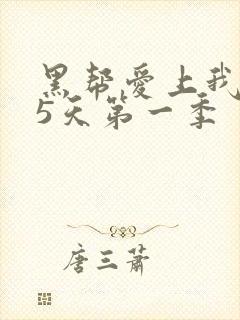 黑帮爱上我
5天第一季
唐三萧